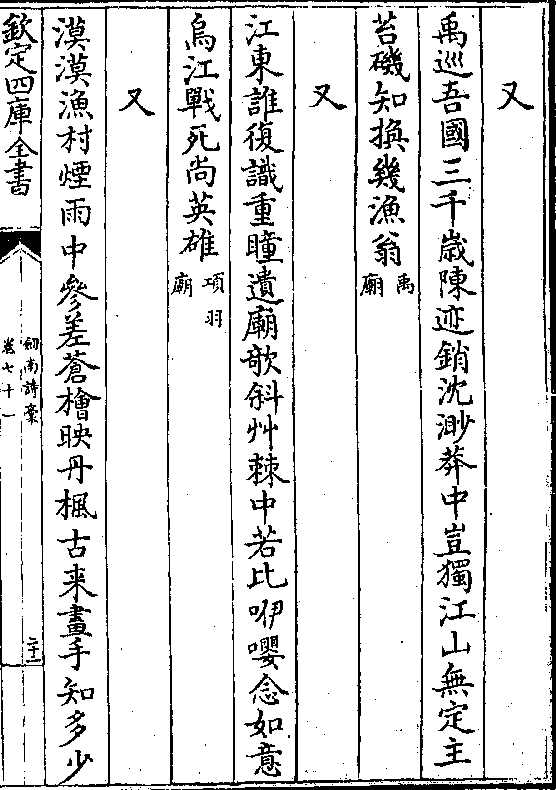 又
禹巡吾國三千歳陳迹銷沈渺莽中豈獨江山無定主
苔磯知換幾漁翁禹廟
又
江東誰復識重瞳遺廟欹斜艸棘中若比咿嚶念如意
烏江戰死尚英雄項羽廟
又
漠漠漁村煙雨中參差蒼檜映丹楓古来畫手知多少
欽定四庫全書
劒南詩稾
卷七十一
二十二